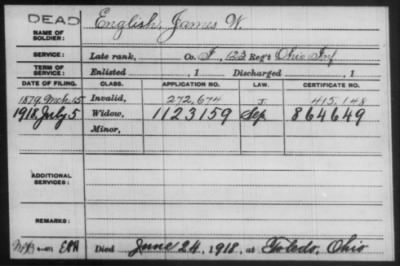 DEAD
NAME OF SOLDIER: English, James W.
SERVICE: Late rank, Co. F, 123 Reg't Ohio Inf
TERM OF SERVICE: Enlisted , 1 Discharged , 1
DATE OF FILING. CLASS. APPLICATION NO. LAW. CERTIFICATE NO.
1879 Mch 15 Invalid, 272,674 J. 415,148
1918 July 5 Widow, 1123159 Sep 864649
Minor,
ADDITIONAL SERVICES:
REMARKS:
Died June 24, 1918, at Toledo, Ohio